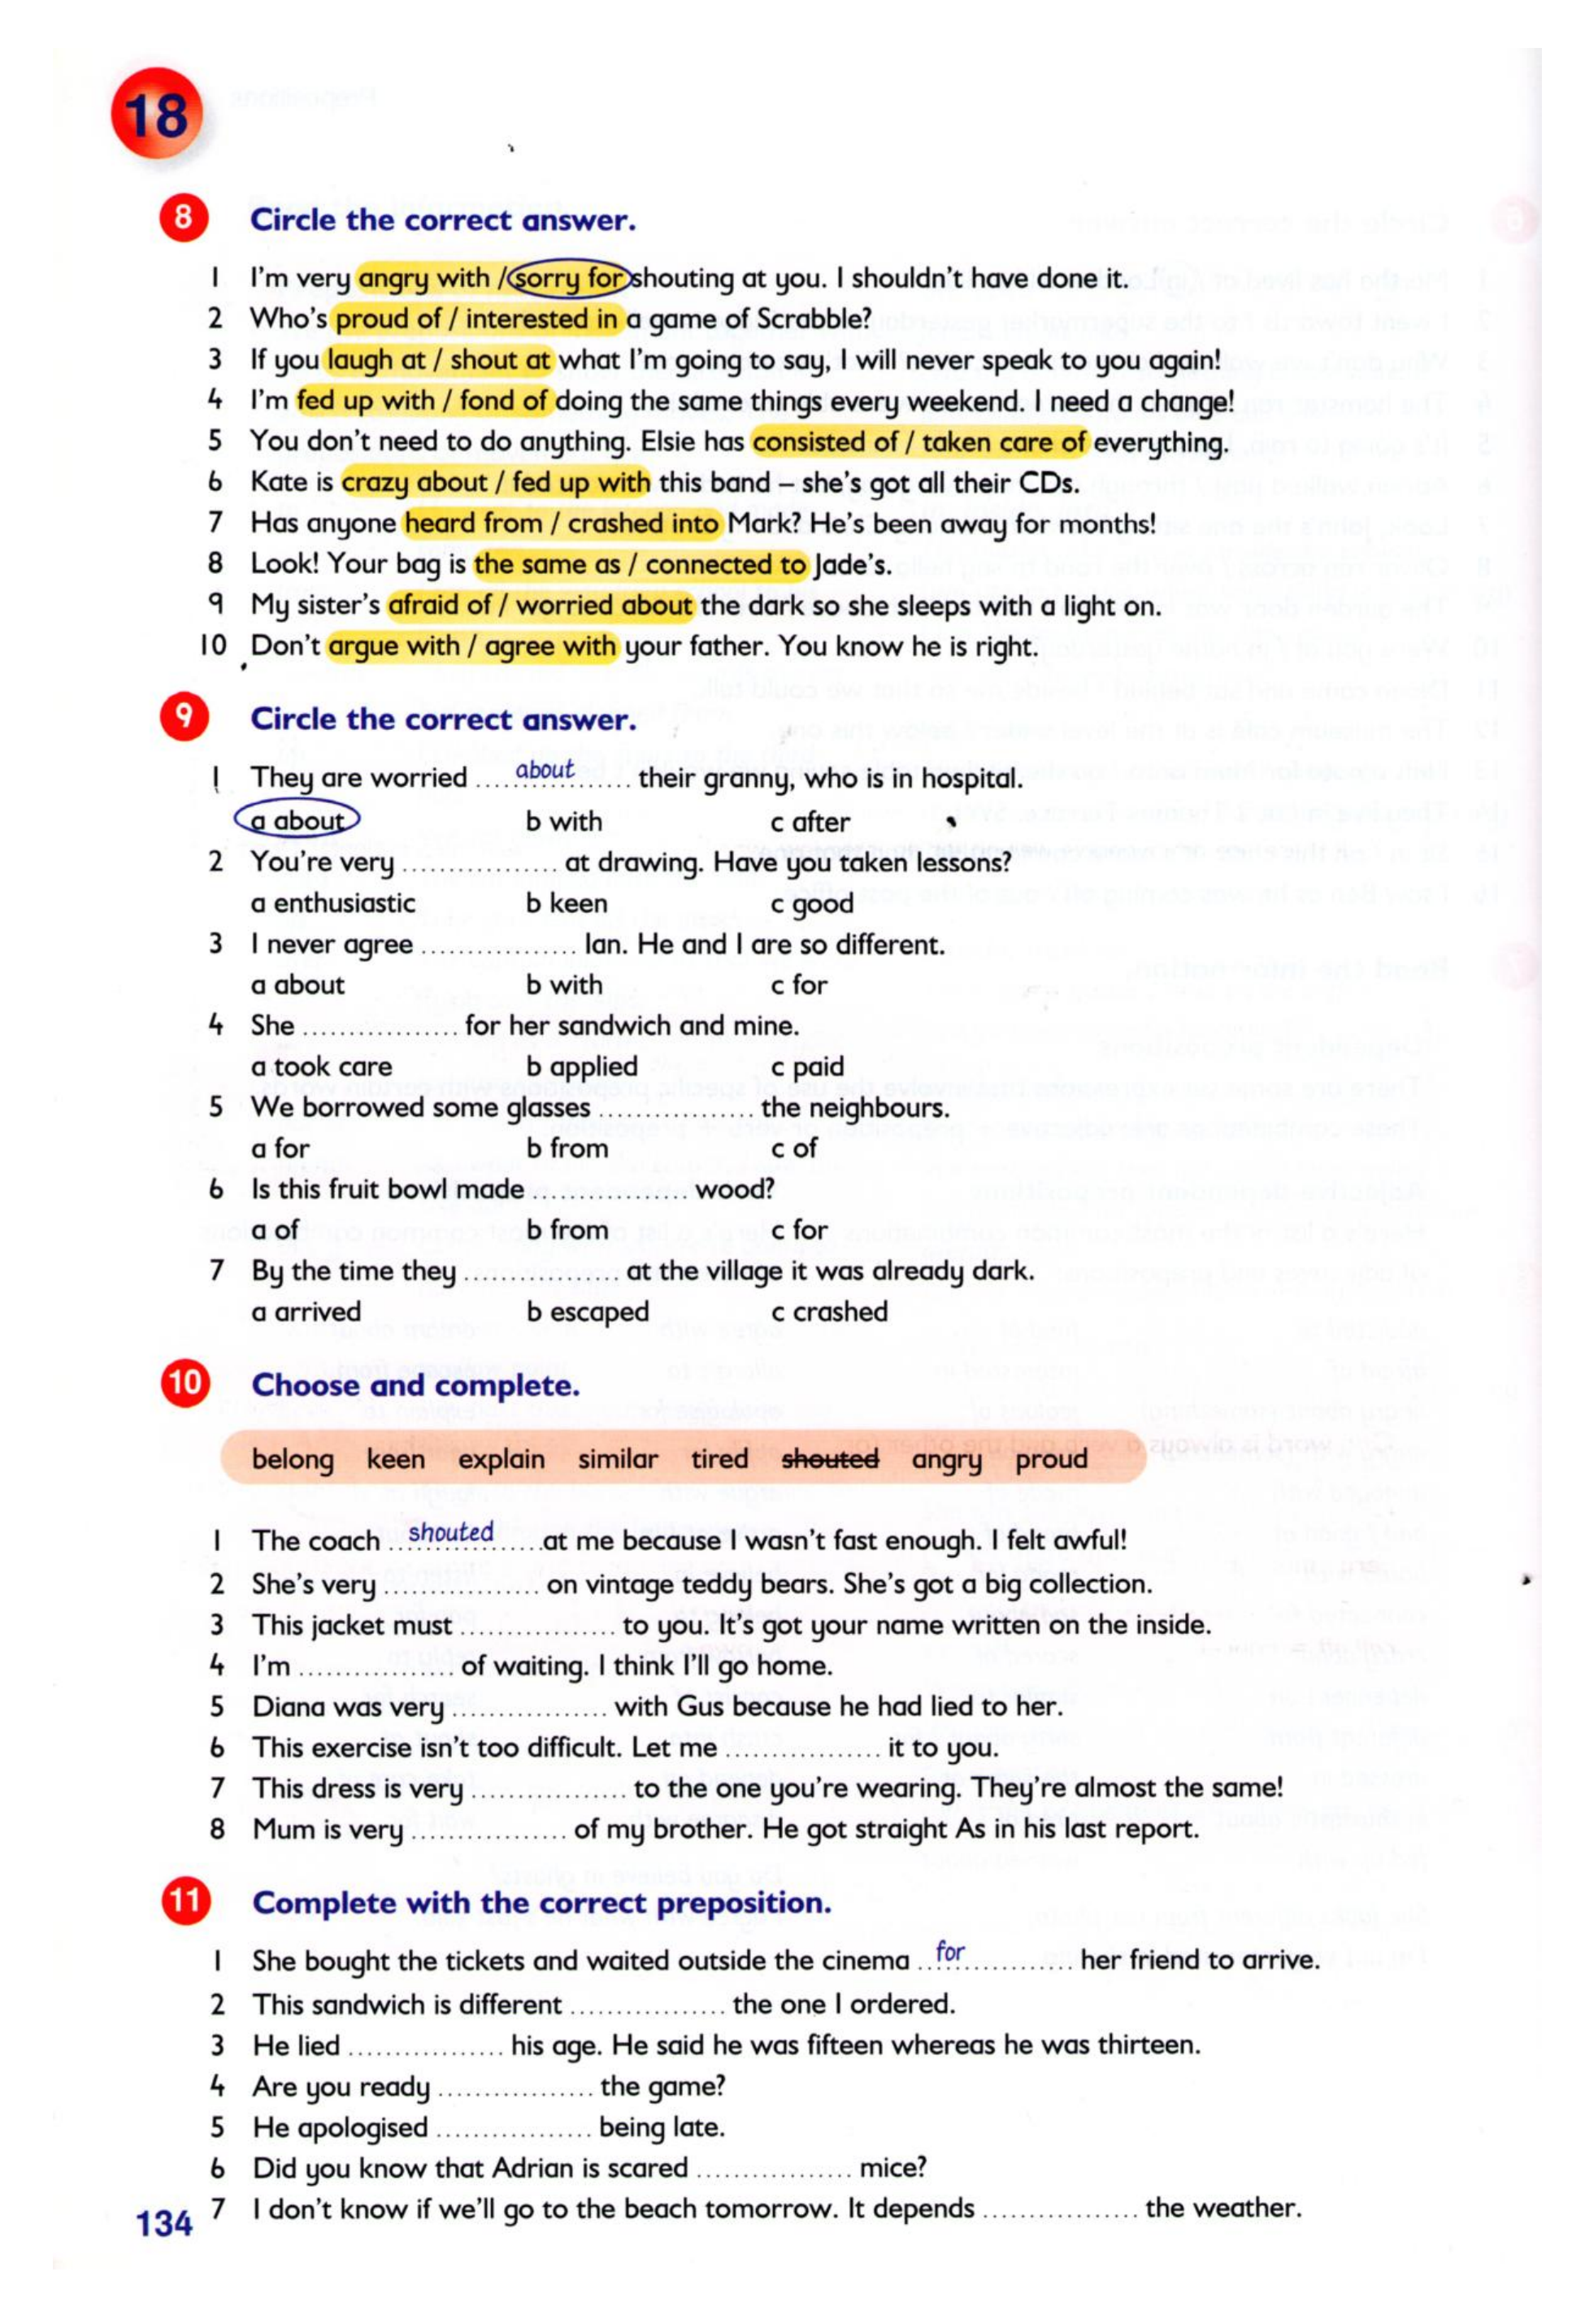 18
8 Circle the correct answer.
1 I'm very angry with / sorry for shouting at you. I shouldn't have done it.
2 Who's proud of / interested in a game of Scrabble?
3 If you laugh at / shout at what I'm going to say, I will never speak to you again!
4 I'm fed up with / fond of doing the same things every weekend. I need a change!
5 You don't need to do anything. Elsie has consisted of / taken care of everything.
6 Kate is crazy about / fed up with this band – she's got all their CDs.
7 Has anyone heard from / crashed into Mark? He's been away for months!
8 Look! Your bag is the same as / connected to Jade's.
9 My sister's afraid of / worried about the dark so she sleeps with a light on.
10 Don't argue with / agree with your father. You know he is right.
9 Circle the correct answer.
1 They are worried about their granny, who is in hospital.
a about b with c after
2 You're very ................. at drawing. Have you taken lessons?
a enthusiastic b keen c good
3 I never agree ................. Ian. He and I are so different.
a about b with c for
4 She ................. for her sandwich and mine.
a took care b applied c paid
5 We borrowed some glasses ................. the neighbours.
a for b from c of
6 Is this fruit bowl made ................. wood?
a of b from c for
7 By the time they ................. at the village it was already dark.
a arrived b escaped c crashed
10 Choose and complete.
belong keen explain similar tired shouted angry proud
1 The coach shouted at me because I wasn't fast enough. I felt awful!
2 She's very ................. on vintage teddy bears. She's got a big collection.
3 This jacket must ................. to you. It's got your name written on the inside.
4 I'm ................. of waiting. I think I'll go home.
5 Diana was very ................. with Gus because he had lied to her.
6 This exercise isn't too difficult. Let me ................. it to you.
7 This dress is very ................. to the one you're wearing. They're almost the same!
8 Mum is very ................. of my brother. He got straight As in his last report.
11 Complete with the correct preposition.
1 She bought the tickets and waited outside the cinema for her friend to arrive.
2 This sandwich is different ................. the one I ordered.
3 He lied ................. his age. He said he was fifteen whereas he was thirteen.
4 Are you ready ................. the game?
5 He apologised ................. being late.
6 Did you know that Adrian is scared ................. mice?
7 I don't know if we'll go to the beach tomorrow. It depends ................. the weather.
134